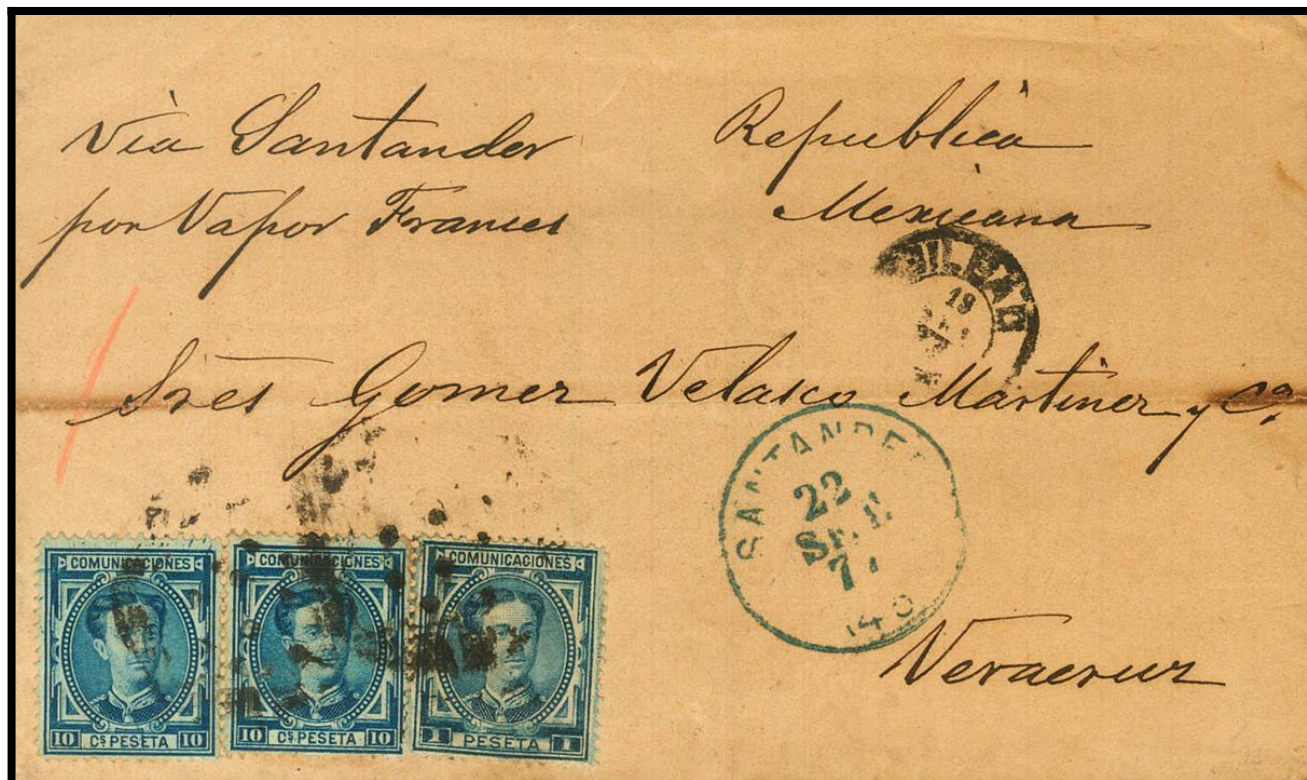 Via Santander
por Vapor Frances
Republica
Mexicana
BILBAO
19
Sres Gomez Velasco Martinez y Ca.
SANTANDE
22
SET
7
Veracruz
COMUNICACIONES
10 Cs PESETA 10
COMUNICACIONES
10 Cs PESETA 10
COMUNICACIONES
1 PESETA 1